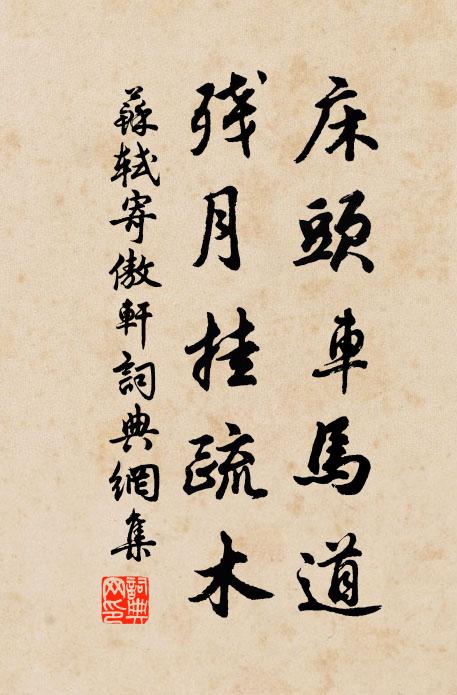 床頭車馬道
残月挂疏木
蘇軾寄傲軒詞典網集
詞典
网印